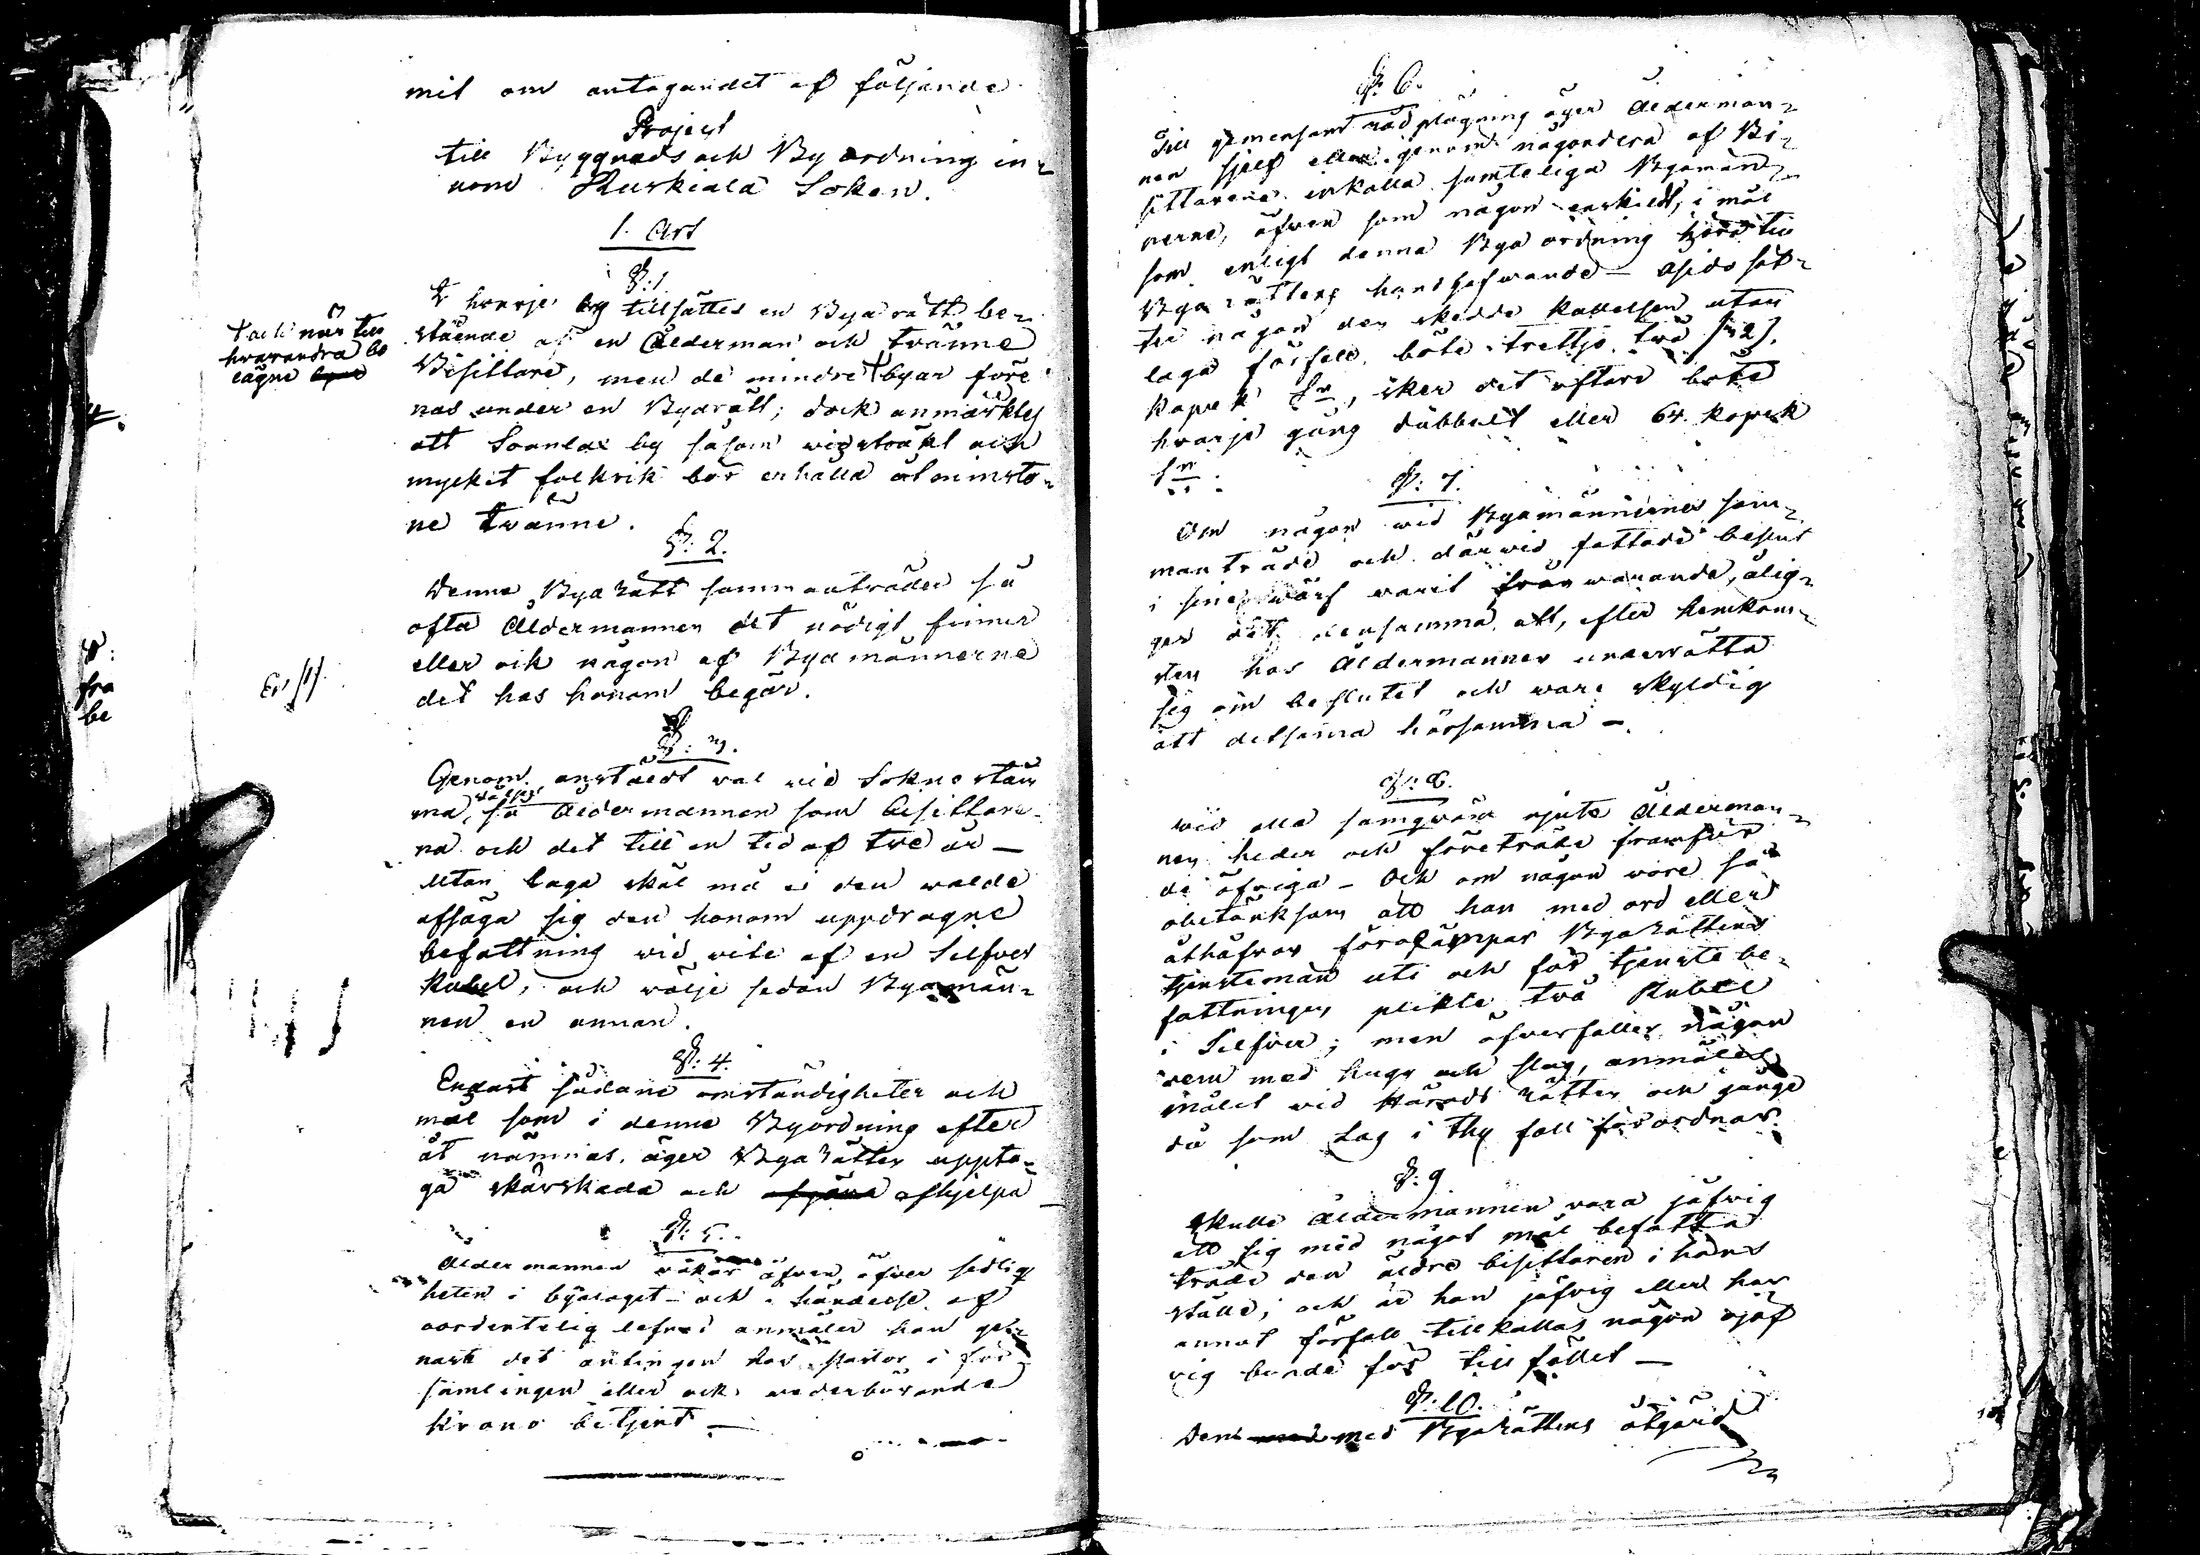 mit om antagandet af följande
Project
till Byggnads och By ordning in-
nom Ruskiala Soken.
1. Art
§: 1
I hvarje by tillsättes en Bya rätt be-
stående af en Ålderman och tvänne
Bisittare, men de mindre † byar före-
nas under en Byarätt; dock anmärktes
att Soanlax by såsom widsträkt och
mycket folkrik bör erhålla åtminsto-
ne tvänne.
† och när till
hvarandra be
lägne
§: 2.
Denne Bya Rätt sammanträder så
ofta Åldermannen det nödigt finner
eller ock någon af Byamännerne
det hos honom begär.
§: 3.
Genom anstäldt val vid Sokne stäm
ma, väljes så Åldermannen som bisittare-
na och det till en tid af tre år —
Utan laga skäl må ei den walde
afsäga sig den honom uppdragne
befattning vid vite af en Silfver
Rubel, och välje sedan Byamän-
nen en annan.
§: 4.
Endast sådane omständigheter och
mål som i denne Byordning efter
åt nämnas, äger Bya Rätten uppta-
ga skärskåda och afgöra afhjelpa —
§: 5.
Åldermannen vakar äfven öfver sedlig
heten i byalaget — och i händelse af
oordentelig lefnad anmäler han ge-
nast det antingen hos Pastor i för
samlingen eller ock wederbörande
Krono betjent —
§: 6.
Till gemensam rådplägning äger Ålderman-
nen sjelf eller genom någondera af Bi-
sittarene inkalla samteliga Byamän-
nerne, äfven som någon enskildt, i mål
som enligt denna Bya ordning höra till
Bya rättens handhafwande — Åsido sät-
ter någon den skedde kallelsen utan
laga förfall, böte trettio två [32].
Kopek Sr, sker det oftare böte
hvarje gång dubbelt eller 64. kopek
Sr.
§: 7.
Om någon wid Byamännernes sam-
manträde och därwid fattade beslut
i sine värf varit frånwarande, ålig-
ger det densamma att, efter hemkom-
sten hos Åldermannen underrätta
sig om beslutet och ware skyldig
att detsamma hörsamma —.
§: 8.
Wid alla samqväm njute Ålderman-
nen heder och företräde framför
de öfriga — Och om någon vore så
obetänksam att han med ord eller
åthäfvor förolämpar Bya Rättens
tjensteman uti och för tjenste be-
fattningen, plikte två Rubel
i Silfver; men öfverfaller någon
dem med hugg och slag, anmäles
målet wid Härads Rätten och gånge
då som Lag i thy fall förordnar.
§: 9
Skulle Åldermannen vara jäfvig
att sig med något mål befatta
träde den äldre bisittaren i hans
ställe; och är han jäfvig eller har
annat förfall tillkallas någon ojäf
vig bonde för tillfället —
§: 10.
Den med Bya Rättens åtgärd